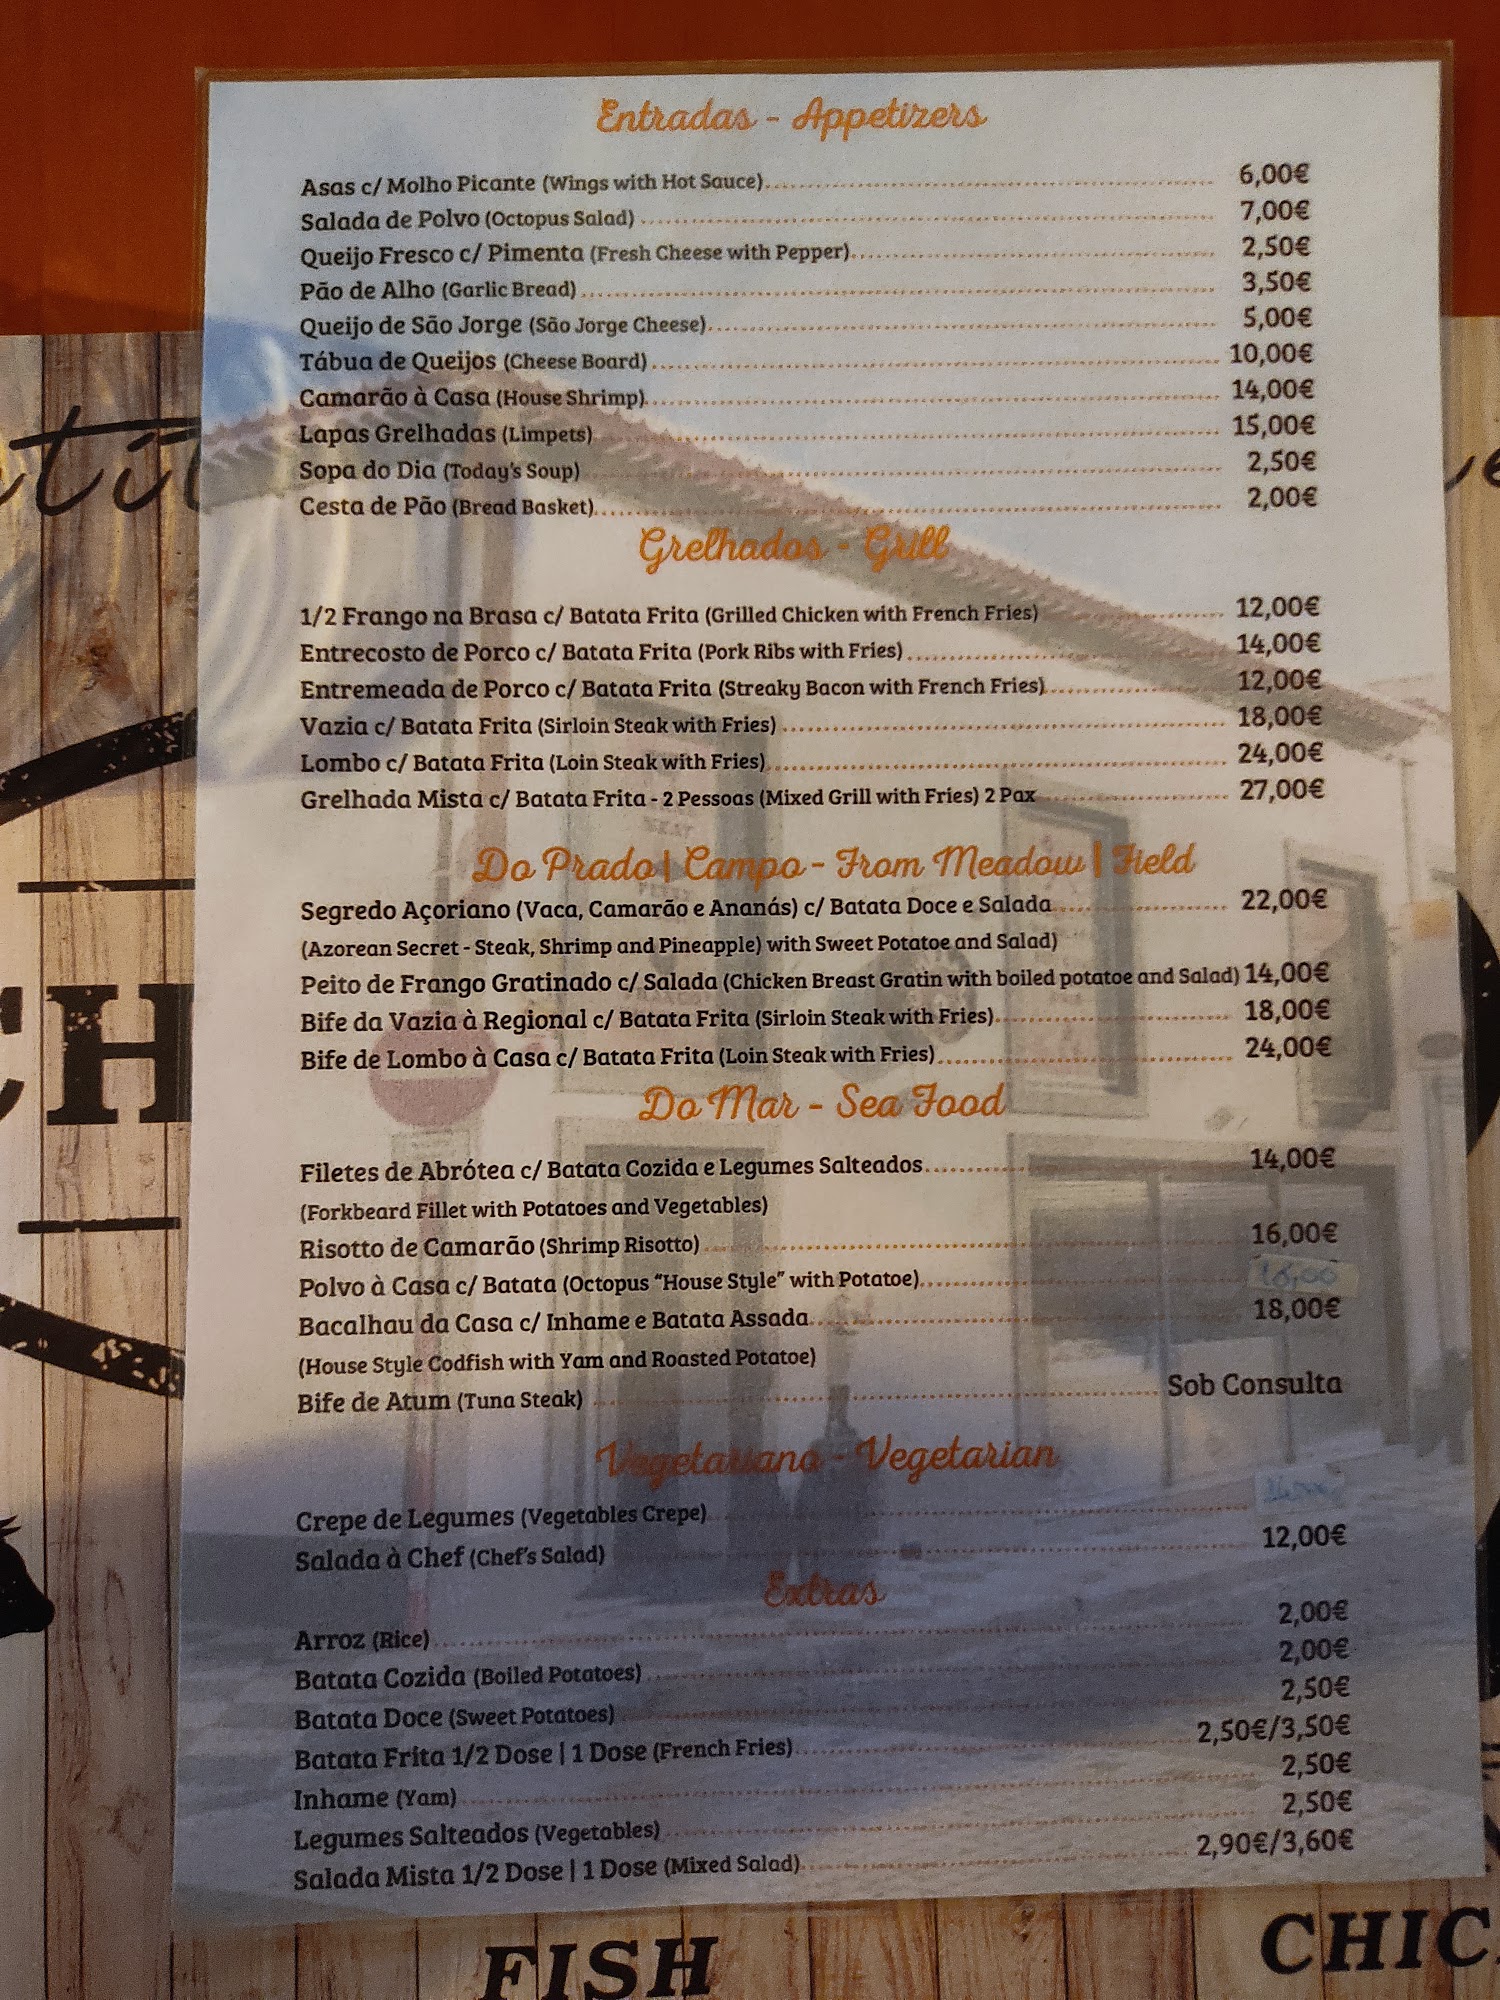 Entradas - Appetizers
Asas c/ Molho Picante (Wings with Hot Sauce) 6,00€
Salada de Polvo (Octopus Salad) 7,00€
Queijo Fresco c/ Pimenta (Fresh Cheese with Pepper) 2,50€
Pão de Alho (Garlic Bread) 3,50€
Queijo de São Jorge (São Jorge Cheese) 5,00€
Tábua de Queijos (Cheese Board) 10,00€
Camarão à Casa (House Shrimp) 14,00€
Lapas Grelhadas (Limpets) 15,00€
Sopa do Dia (Today's Soup) 2,50€
Cesta de Pão (Bread Basket) 2,00€
Grelhados - Grill
1/2 Frango na Brasa c/ Batata Frita (Grilled Chicken with French Fries) 12,00€
Entrecosto de Porco c/ Batata Frita (Pork Ribs with Fries) 14,00€
Entremeada de Porco c/ Batata Frita (Streaky Bacon with French Fries) 12,00€
Vazia c/ Batata Frita (Sirloin Steak with Fries) 18,00€
Lombo c/ Batata Frita (Loin Steak with Fries) 24,00€
Grelhada Mista c/ Batata Frita - 2 Pessoas (Mixed Grill with Fries) 2 Pax 27,00€
Do Prado | Campo - From Meadow | Field
Segredo Açoriano (Vaca, Camarão e Ananás) c/ Batata Doce e Salada 22,00€
(Azorean Secret - Steak, Shrimp and Pineapple) with Sweet Potatoe and Salad)
Peito de Frango Gratinado c/ Salada (Chicken Breast Gratin with boiled potatoe and Salad) 14,00€
Bife da Vazia à Regional c/ Batata Frita (Sirloin Steak with Fries) 18,00€
Bife de Lombo à Casa c/ Batata Frita (Loin Steak with Fries) 24,00€
Do Mar - Sea Food
Filetes de Abrótea c/ Batata Cozida e Legumes Salteados 14,00€
(Forkbeard Fillet with Potatoes and Vegetables)
Risotto de Camarão (Shrimp Risotto) 16,00€
Polvo à Casa c/ Batata (Octopus "House Style" with Potatoe)
Bacalhau da Casa c/ Inhame e Batata Assada 18,00€
(House Style Codfish with Yam and Roasted Potatoe)
Bife de Atum (Tuna Steak) Sob Consulta
Vegetariana - Vegetarian
Crepe de Legumes (Vegetables Crepe)
Salada à Chef (Chef's Salad) 12,00€
Extras
Arroz (Rice) 2,00€
Batata Cozida (Boiled Potatoes) 2,00€
Batata Doce (Sweet Potatoes) 2,50€
Batata Frita 1/2 Dose | 1 Dose (French Fries) 2,50€/3,50€
Inhame (Yam) 2,50€
Legumes Salteados (Vegetables) 2,50€
Salada Mista 1/2 Dose | 1 Dose (Mixed Salad) 2,90€/3,60€
FISH